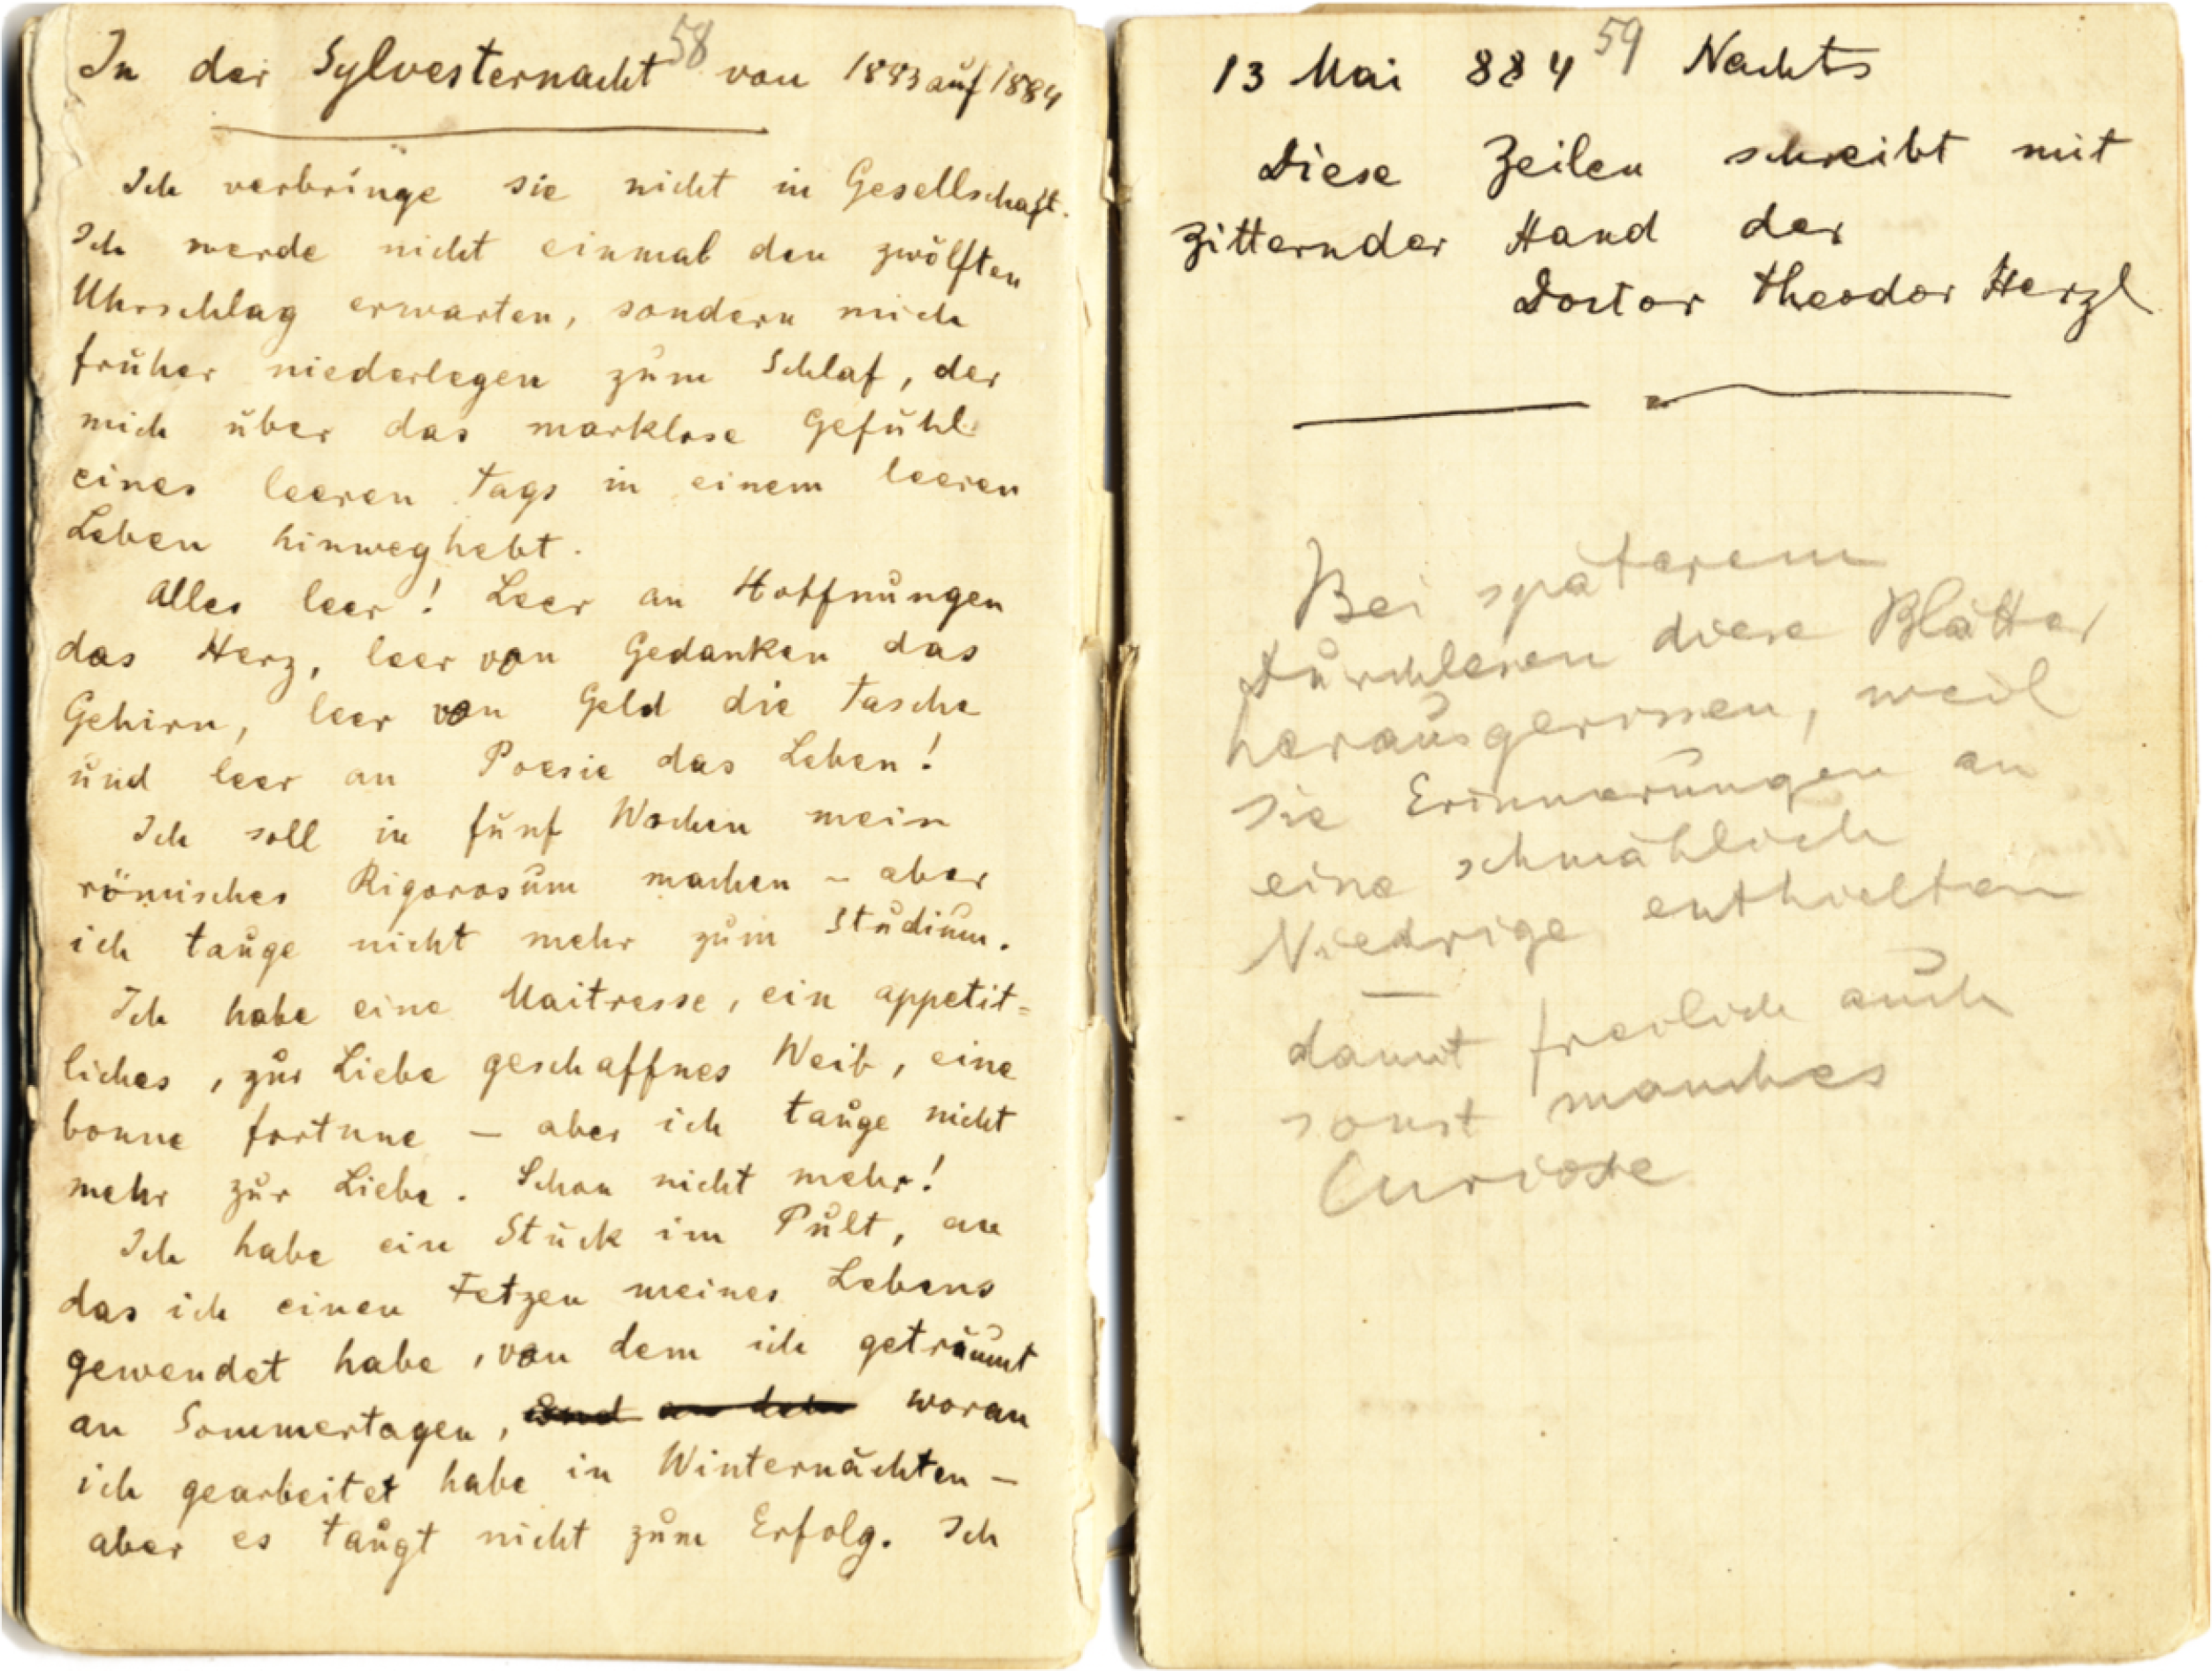 58
In der Sylvesternacht von 1883 auf 1884
Ich verbringe sie nicht in Gesellschaft.
Ich werde nicht einmal den zwölften
Uhrschlag erwarten, sondern mich
früher niederlegen zum Schlaf, der
mich über das marklose Gefühl
eines leeren Tags in einem leeren
Leben hinweghebt.
Alles leer! Leer an Hoffnungen
das Herz, leer von Gedanken das
Gehirn, leer von Geld die Tasche
und leer an Poesie das Leben!
Ich soll in fünf Wochen mein
römisches Rigorosum machen – aber
ich tauge nicht mehr zum Studium.
Ich habe eine Maitresse, ein appetit=
liches, zur Liebe geschaffnes Weib, eine
bonne fortune – aber ich tauge nicht
mehr zur Liebe. Schon nicht mehr!
Ich habe ein Stück im Pult, an
das ich einen Fetzen meines Lebens
gewendet habe, von dem ich geträumt
an Sommertagen, und an dem woran
ich gearbeitet habe in Winternächten –
aber es taugt nicht zum Erfolg. Ich
59
13 Mai 884 Nachts
Diese Zeilen schreibt mit
zitternder Hand der
Doctor Theodor Herzl
Bei späterem
Durchlesen diese Blätter
herausgerissen, weil
sie Erinnerungen an
eine schmählich
Niedrige enthielten
–
damit freilich auch
sonst manches
Curiose